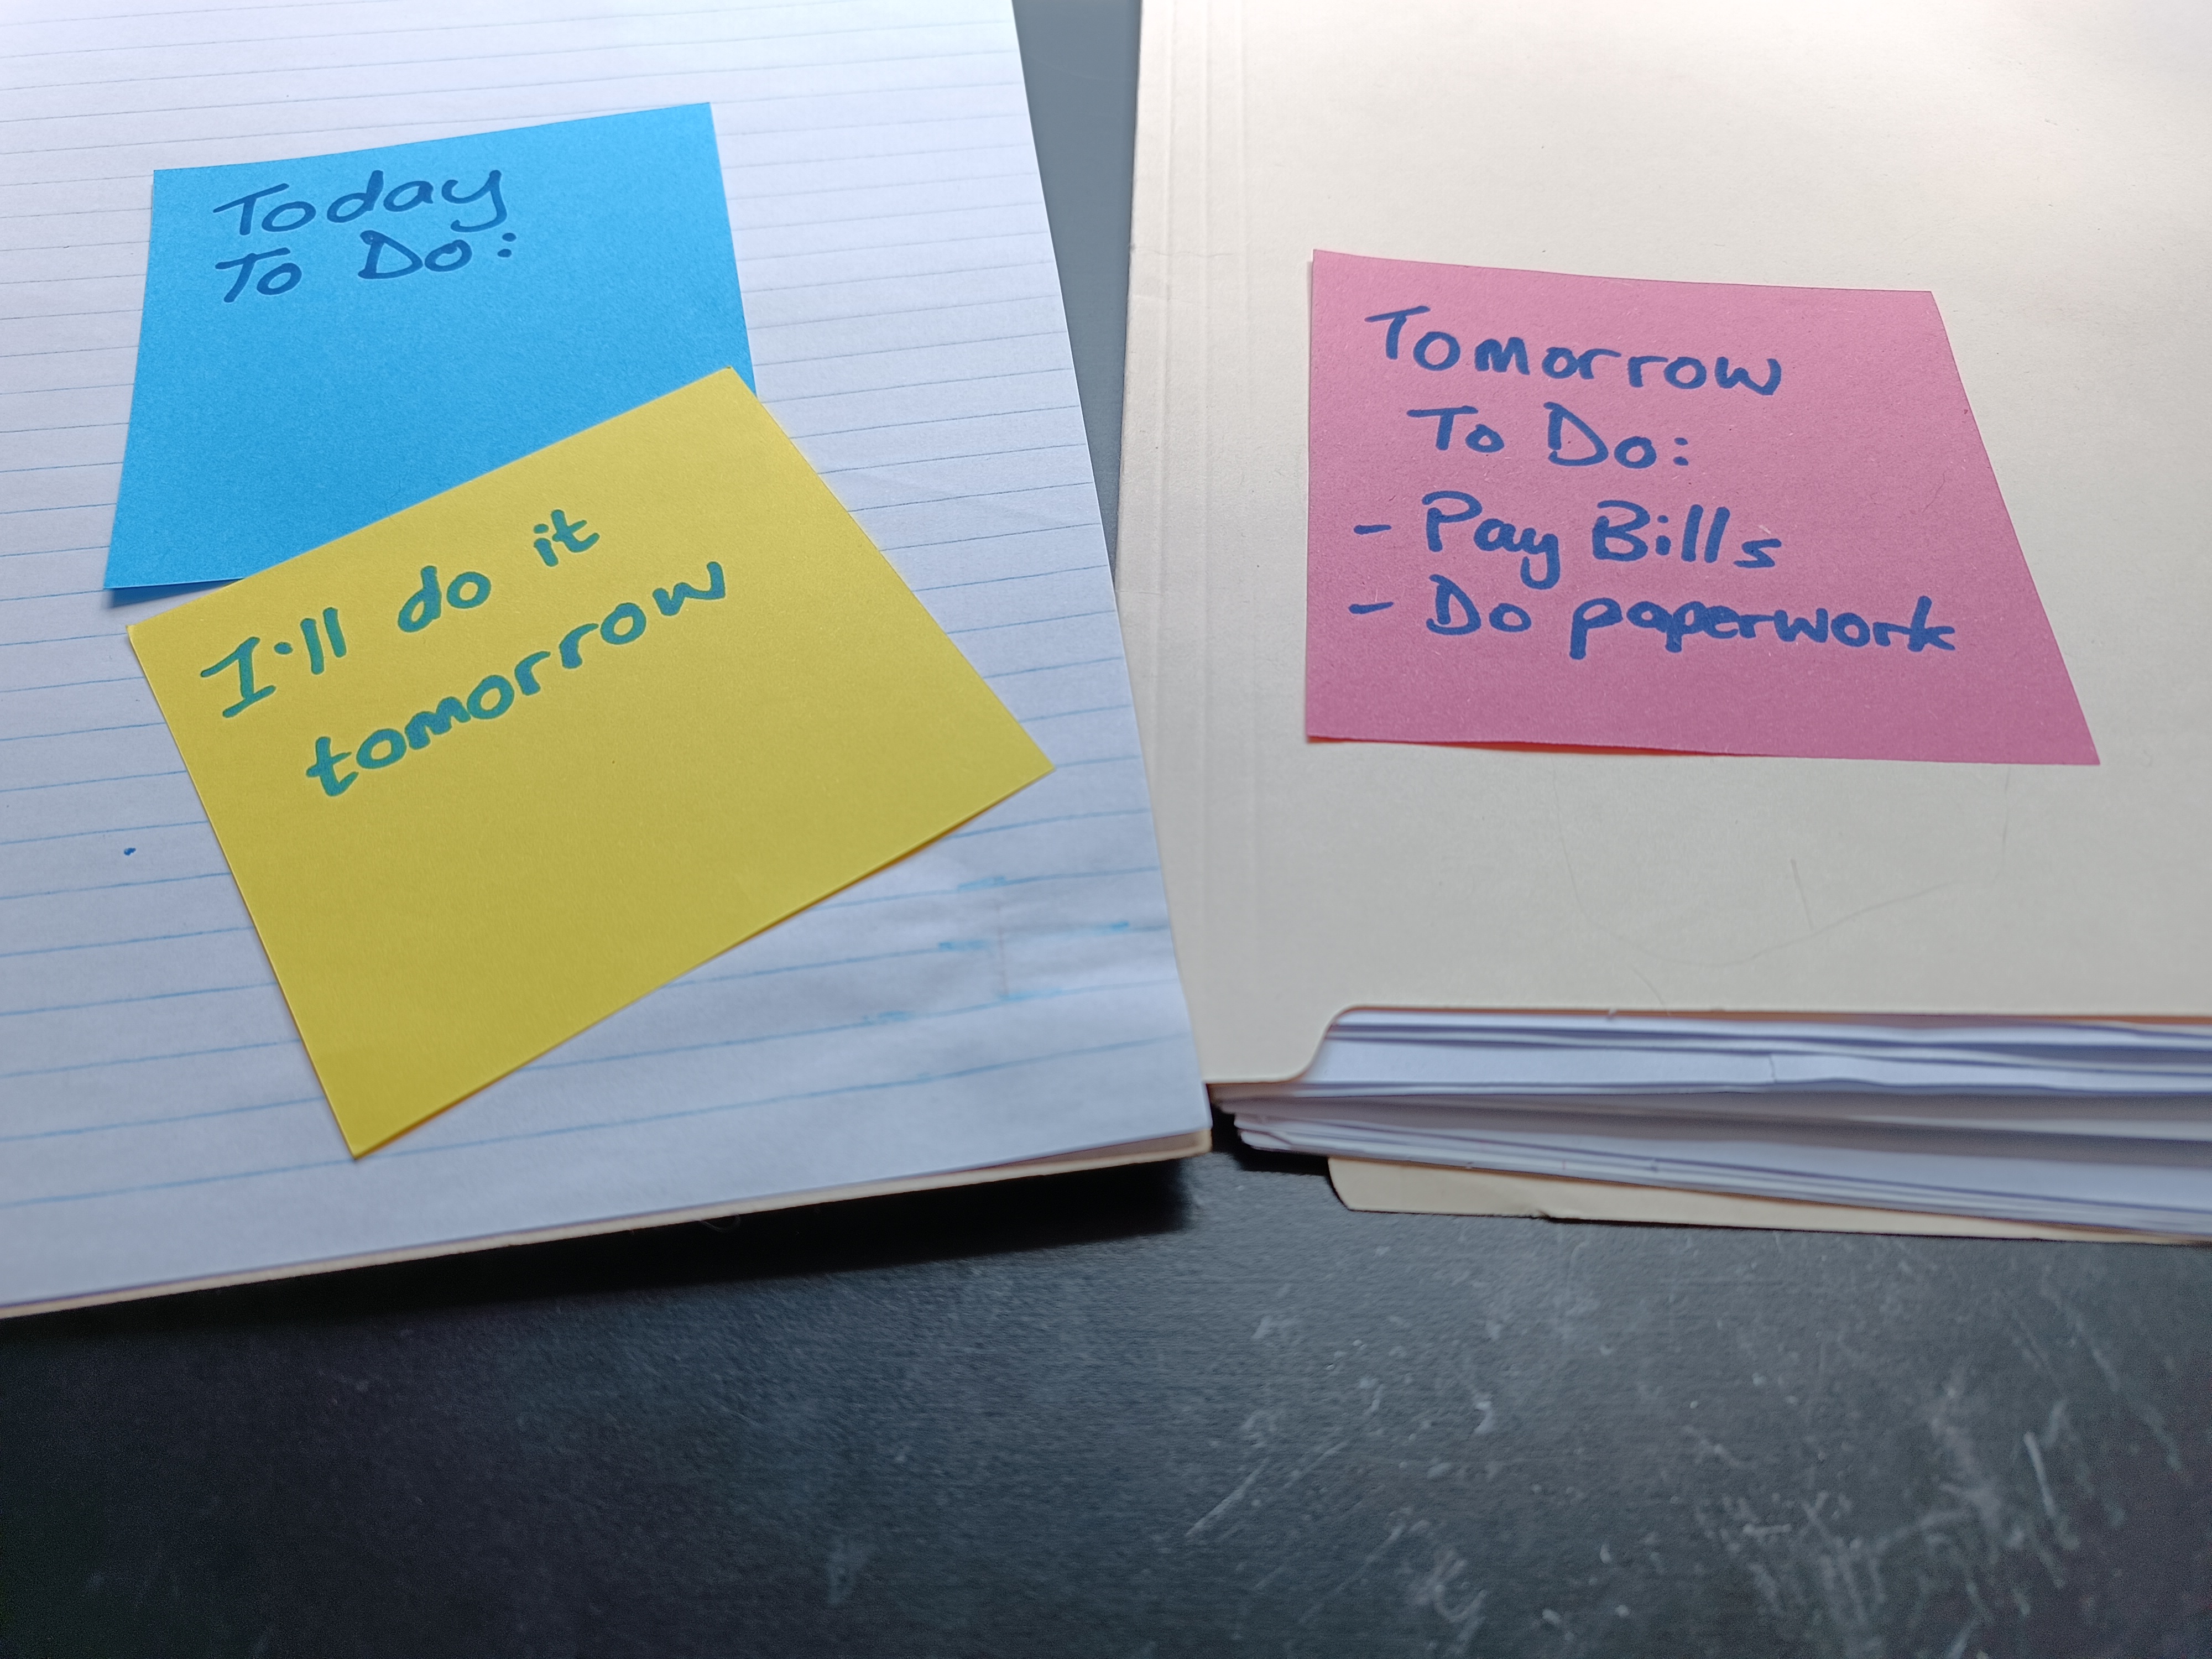 Today
To Do:
I'll do it
tomorrow
Tomorrow
To Do:
- Pay Bills
- Do paperwork